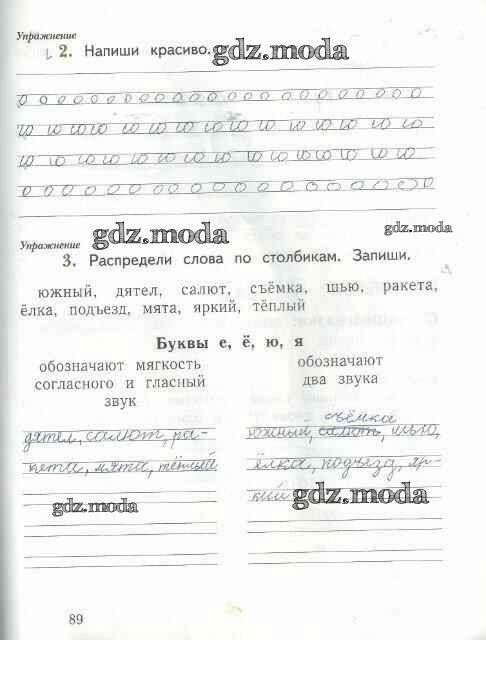 Упражнение
2. Напиши красиво.
gdz.moda
о о о о о о о о о о о о о о о о о о о о о о о о
ю ю ю ю ю ю ю ю ю ю ю ю ю ю ю
ю ю ю ю ю ю ю ю ю ю ю ю ю ю ю
о о о о о о о о о о о о о о о о о о о о о о о
gdz.moda
gdz.moda
Упражнение
3. Распредели слова по столбикам. Запиши.
южный, дятел, салют, съёмка, шью, ракета,
ёлка, подъезд, мята, яркий, тёплый
Буквы е, ё, ю, я
обозначают мягкость
согласного и гласный
звук
дятел, салют, ра-
кета, мята, тёплый
gdz.moda
обозначают
два звука
съёмка
южный, салют, шью,
ёлка, подъезд, яр-
кий
gdz.moda
89